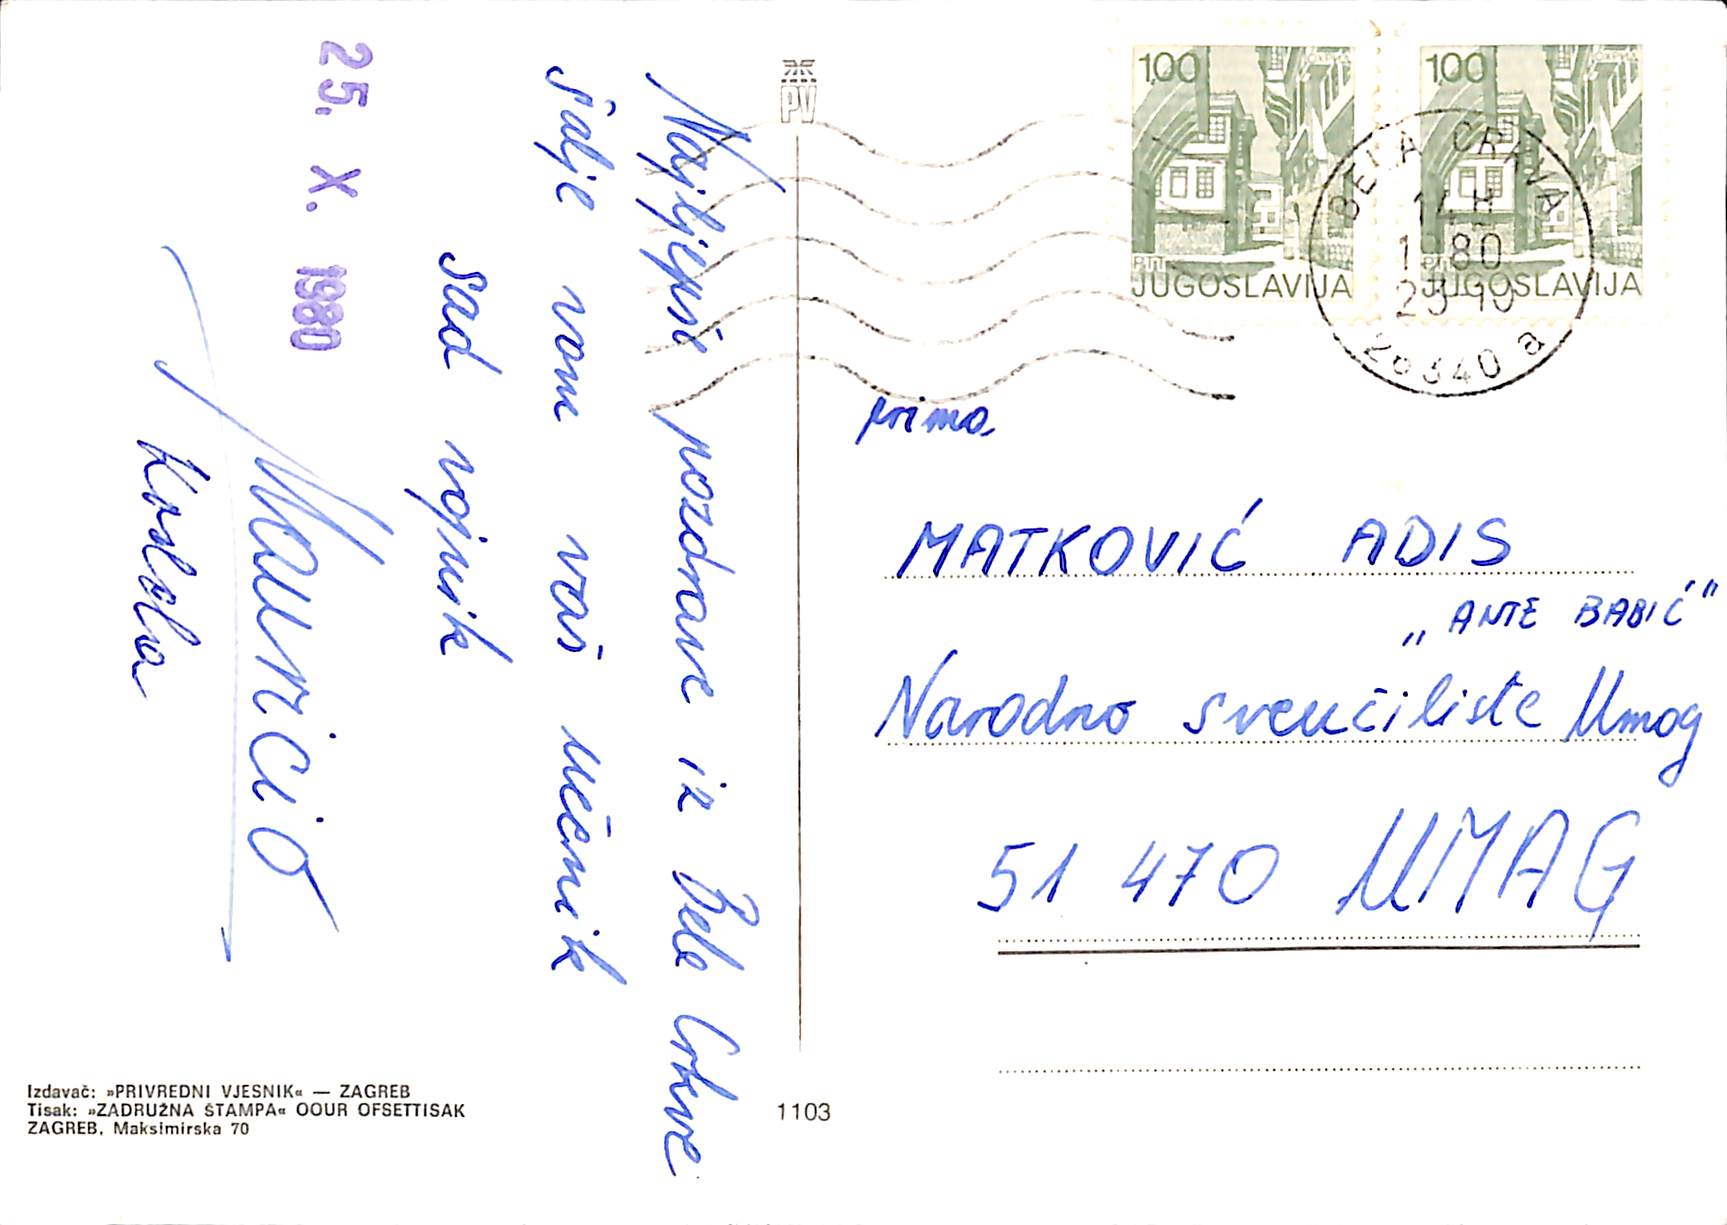 Najljepše pozdrave iz Bele Crkve
šalje vam vaš učenik
sad vojnik
Mauricio
25. X. 1980
PV
100
PTT
JUGOSLAVIJA
100
PTT
JUGOSLAVIJA
BELA CRKVA
14 H
1980
23 10
26340 a
prima
MATKOVIĆ ADIS
„ANTE BABIĆ“
Narodno sveučilište Umag
51 470 UMAG
Izdavač: »PRIVREDNI VJESNIK« — ZAGREB
Tisak: »ZADRUŽNA ŠTAMPA« OOUR OFSETTISAK
ZAGREB, Maksimirska 70
1103